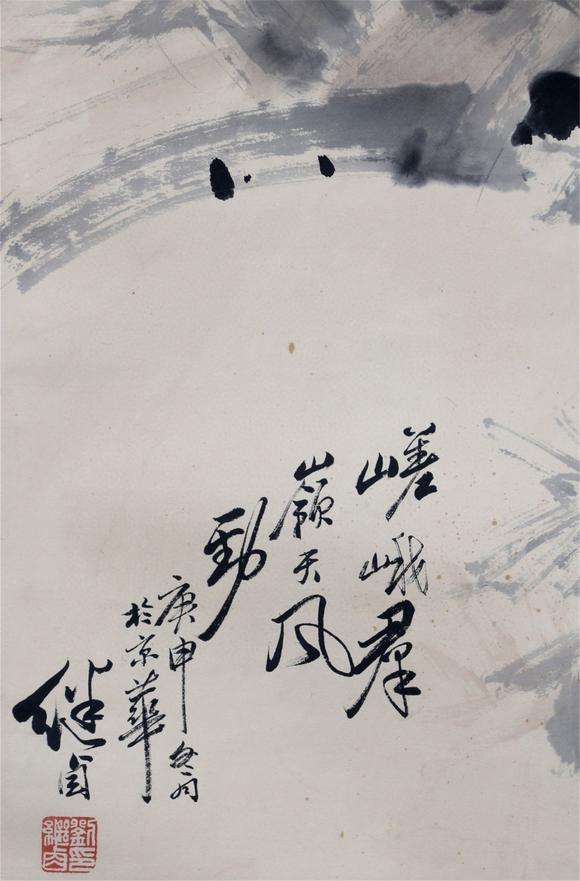 嵯峨群
嶺天風
勁
庚申冬月
於京華
继卣
劉繼卣印